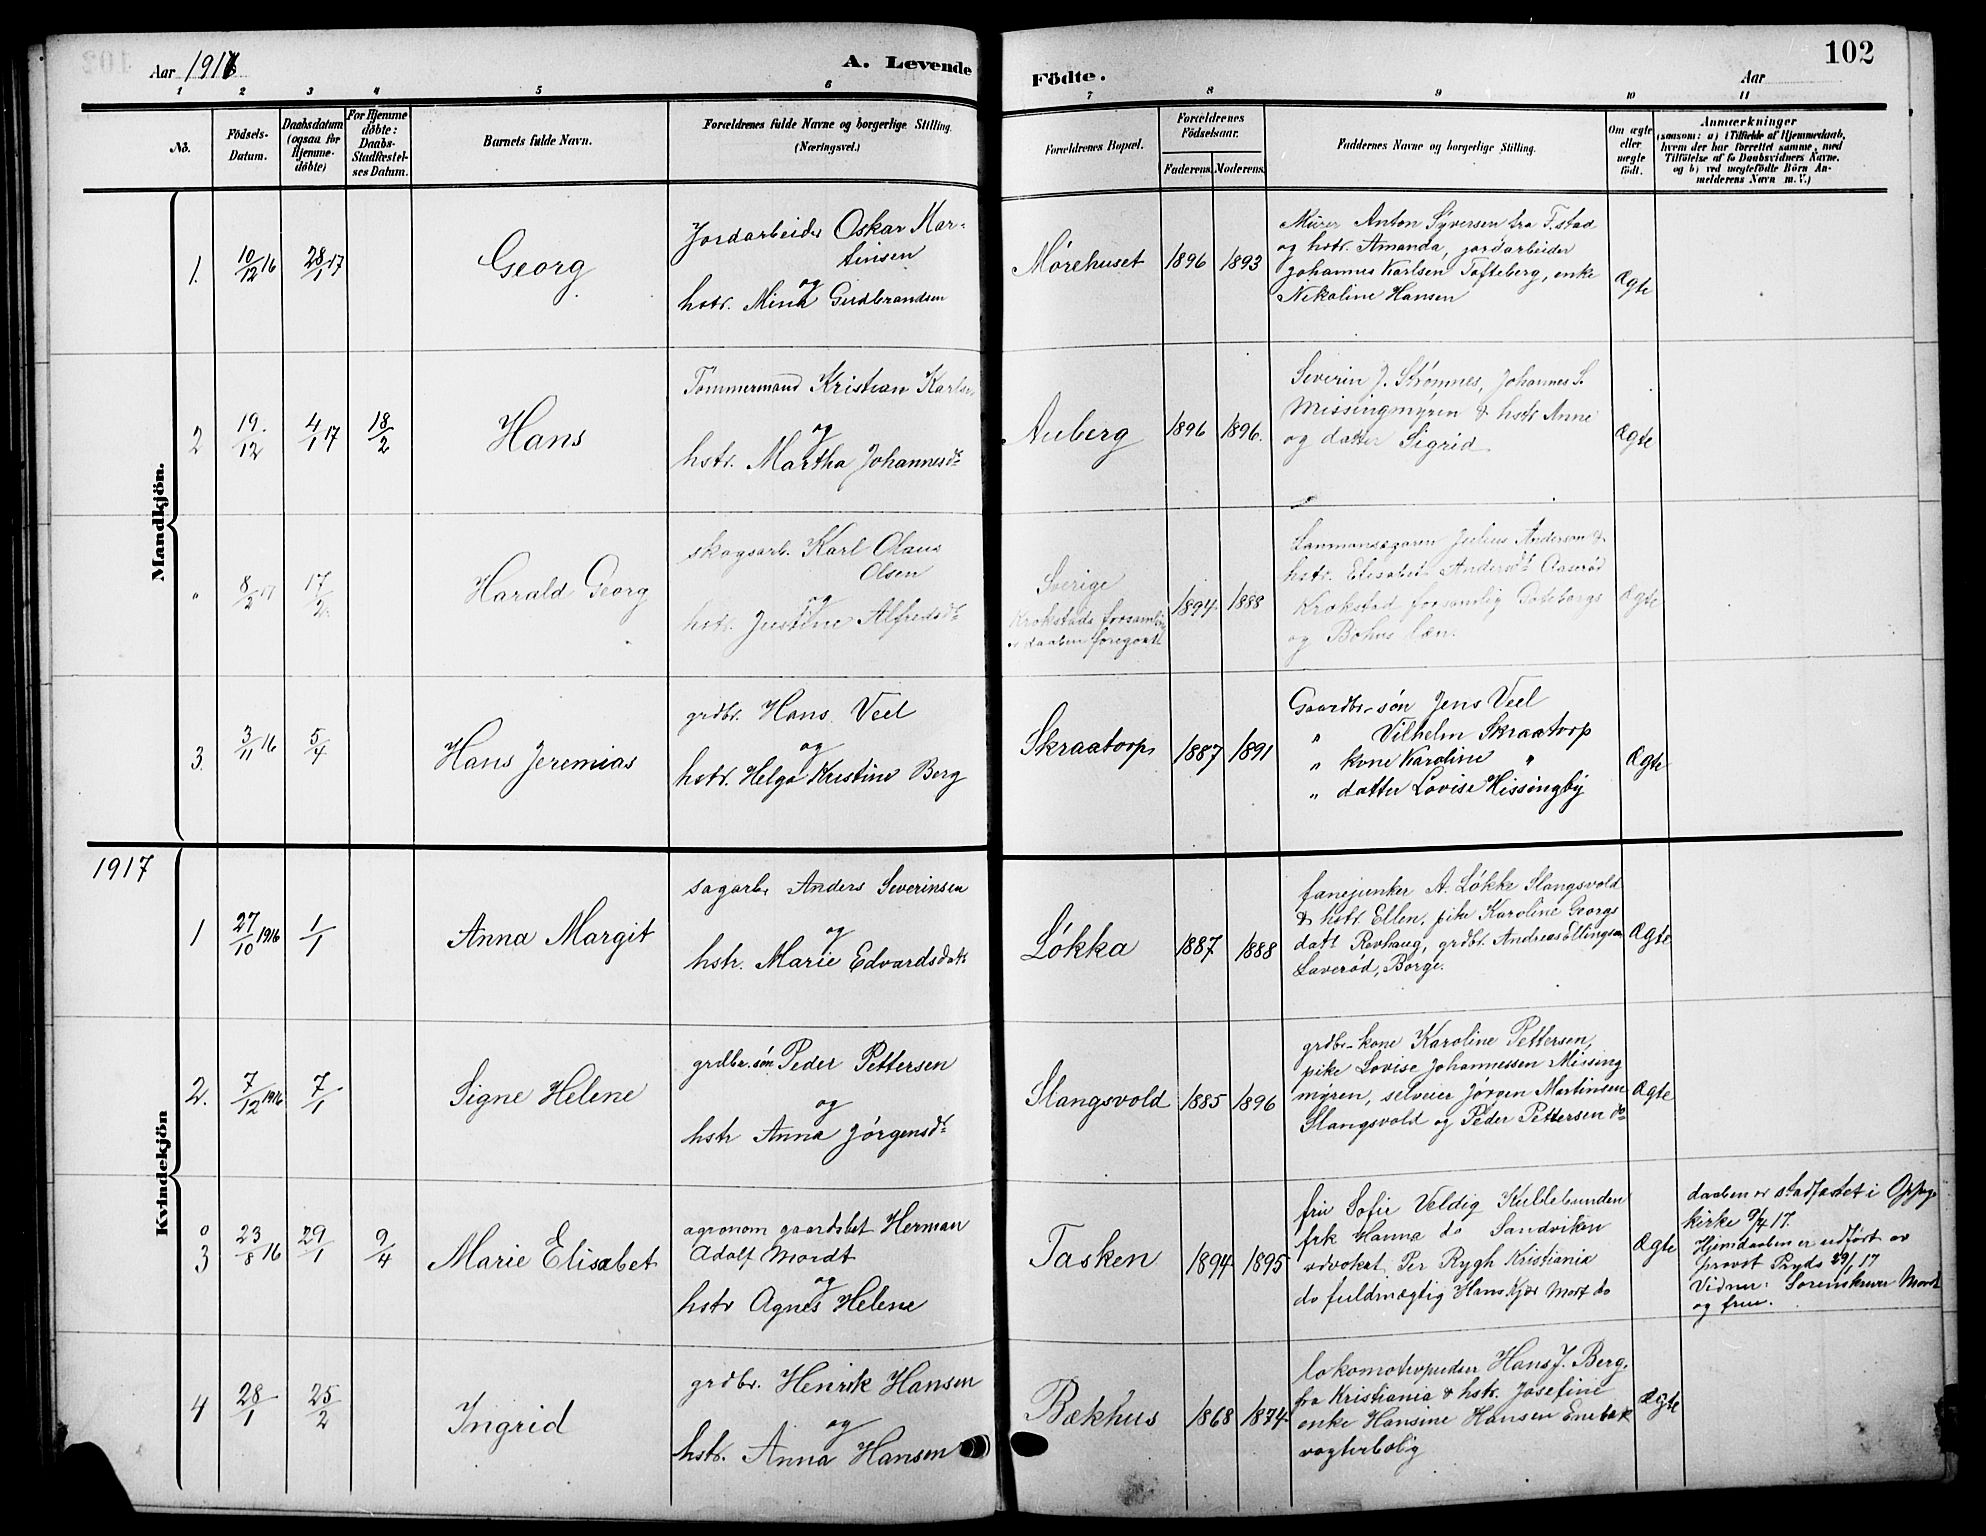 Aar 1917 A. Levende Födte. Aar 102
1 2 3 4 5 6 7 8 9 10 11
No. Födsels-Datum. Daabsdatum (ogsaa for Hjemme-döbte) For Hjemme döbte: Daabs-Stadfæstel-ses Datum. Barnets fulde Navn. Forældrenes fulde Navne og borgerlige Stilling. (Næringsvei.) Forældrenes Bopæl. Forældrenes Födselsaar. Faderens. Moderens. Faddernes Navne og borgerlige Stilling. Om ægte eller uægte födt. Anmærkninger
(saasom: a) i Tilfælde af Hjemmedaab,
hvem der har forrettet samme, med
Tilföielse af to Daabsvidners Navne.
og b) ved uægtefödte Börn An-
melderens Navn m. V.)
Mandkjön.
1. 10/12 16 28/1 17 Georg
Jordarbeider Oskar Mar-
tinsen
og
hstr. Mina Gudbrandsen
Mørehuset 1896 1893
Murer Anton Syversen fra F.stad
og hstr. Amanda, jordarbeider
Johannes Karlsen Tofteberg, enke
Nikoline Hansen
Ægte
2 19/12 4/1 17 18/2 Hans
Tømmermand Kristian Karlsen
og
hstr. Martha Johannesdt
Auberg 1896 1896.
Severin J. Strømnes, Johannes S.
Missingmyren & hstr Anne
og datter Sigrid
Ægte
" 8/2 17 17/2. Harald Georg
skogsarb. Karl Olaus
Olsen
og
hstr. Justine Alfredsdt
Sverige
Krokstads forsamling
er daaben foregaat
1894 1888
Lanmansegaren Julius Anderson &
hstr. Elisabet Andersdt Aaserød
Krokstad forsamlig Gøteborgs
og Bohus Læn.
Ægte
3. 3/11 16 5/4 Hans Jeremias
grdbr. Hans Veel
og
hstr. Helga Kristine Berg
Skraatorp 1887 1891
Gaardbr.søn Jens Veel
" Vilhelm Skraatorp
" kone Karoline "
" datter Lovise Missingby
Ægte
1917
Kvindekjön
1 27/10 1916 1/1 Anna Margit
sagarb. Anders Severinsen
og
hstr. Marie Edvardsdatt
Løkka 1887 1888
fanejunker A. Løkke Slangsvold
& hstr. Ellen, pike Karoline Georgs
datt Rovhaug, grdbr. Andreas Ellingsen
Laverød, Borge.
Ægte
2. 7/12 1916 7/1 Signe Helene
grdbr.søn Peder Pettersen
og
hstr Anna Jørgensdt
Slangsvold 1885 1896
grdbr-kone Karoline Pettersen,
pike Lovise Johannessen Missing
myren, selveier Jørgen Martinsen
Slangsvold og Peder Pettersen do
Ægte
3 23/8 16 29/1 9/4 Marie Elisabet
agronom gaardsbst Herman
Adolf Mordt
og
hstr Agnes Helene
Tasken 1894 1895
fru Sofie Veldig Kullebunden
frk Hanna do Sandviken
advokat Per Rygh Kristiania
do fuldmægtig Hans Kjær Mort do
Ægte
daaben er stadfæstet i
kirke 9/4 17.
Hjemdaaben er udført av
provst Pryds 29/1 17
Vidner: Sorenskriver Mordt
og frue.
4 28/1 25/2 Ingrid
grdbr. Henrik Hansen
og
hstr. Anna Hansen
Bækhus 1868 1874
lokomotivpudser Hans J. Berg,
fra Kristiania & hstr. Josefine
enke Hansine Hansen Enebak
vogterbolig
Ægte